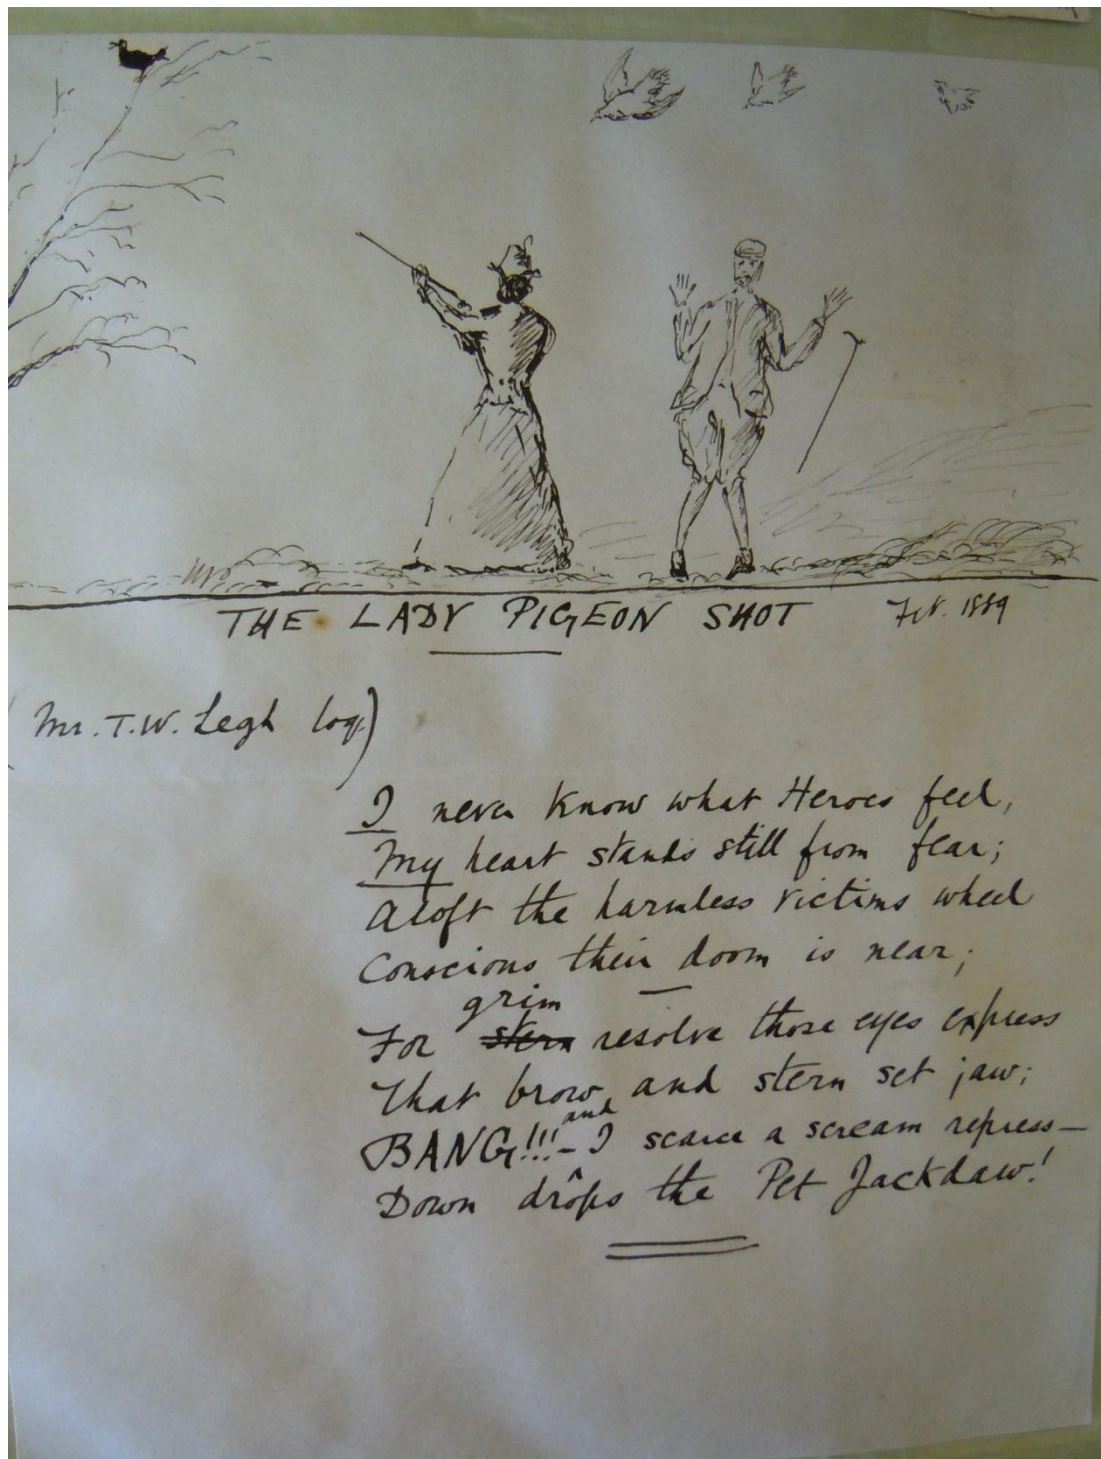 THE LADY PIGEON SHOT Feb. 1889
(Mr. T.W. Legh loq.)
I never know what Heroes feel,
My heart stands still from fear;
Aloft the harmless victims wheel
Conscious their doom is near;
grim
For stern resolve those eyes express
That brow, and stern set jaw;
and
BANG!!! – I scarce a scream repress —
Down drops the Pet Jackdaw!